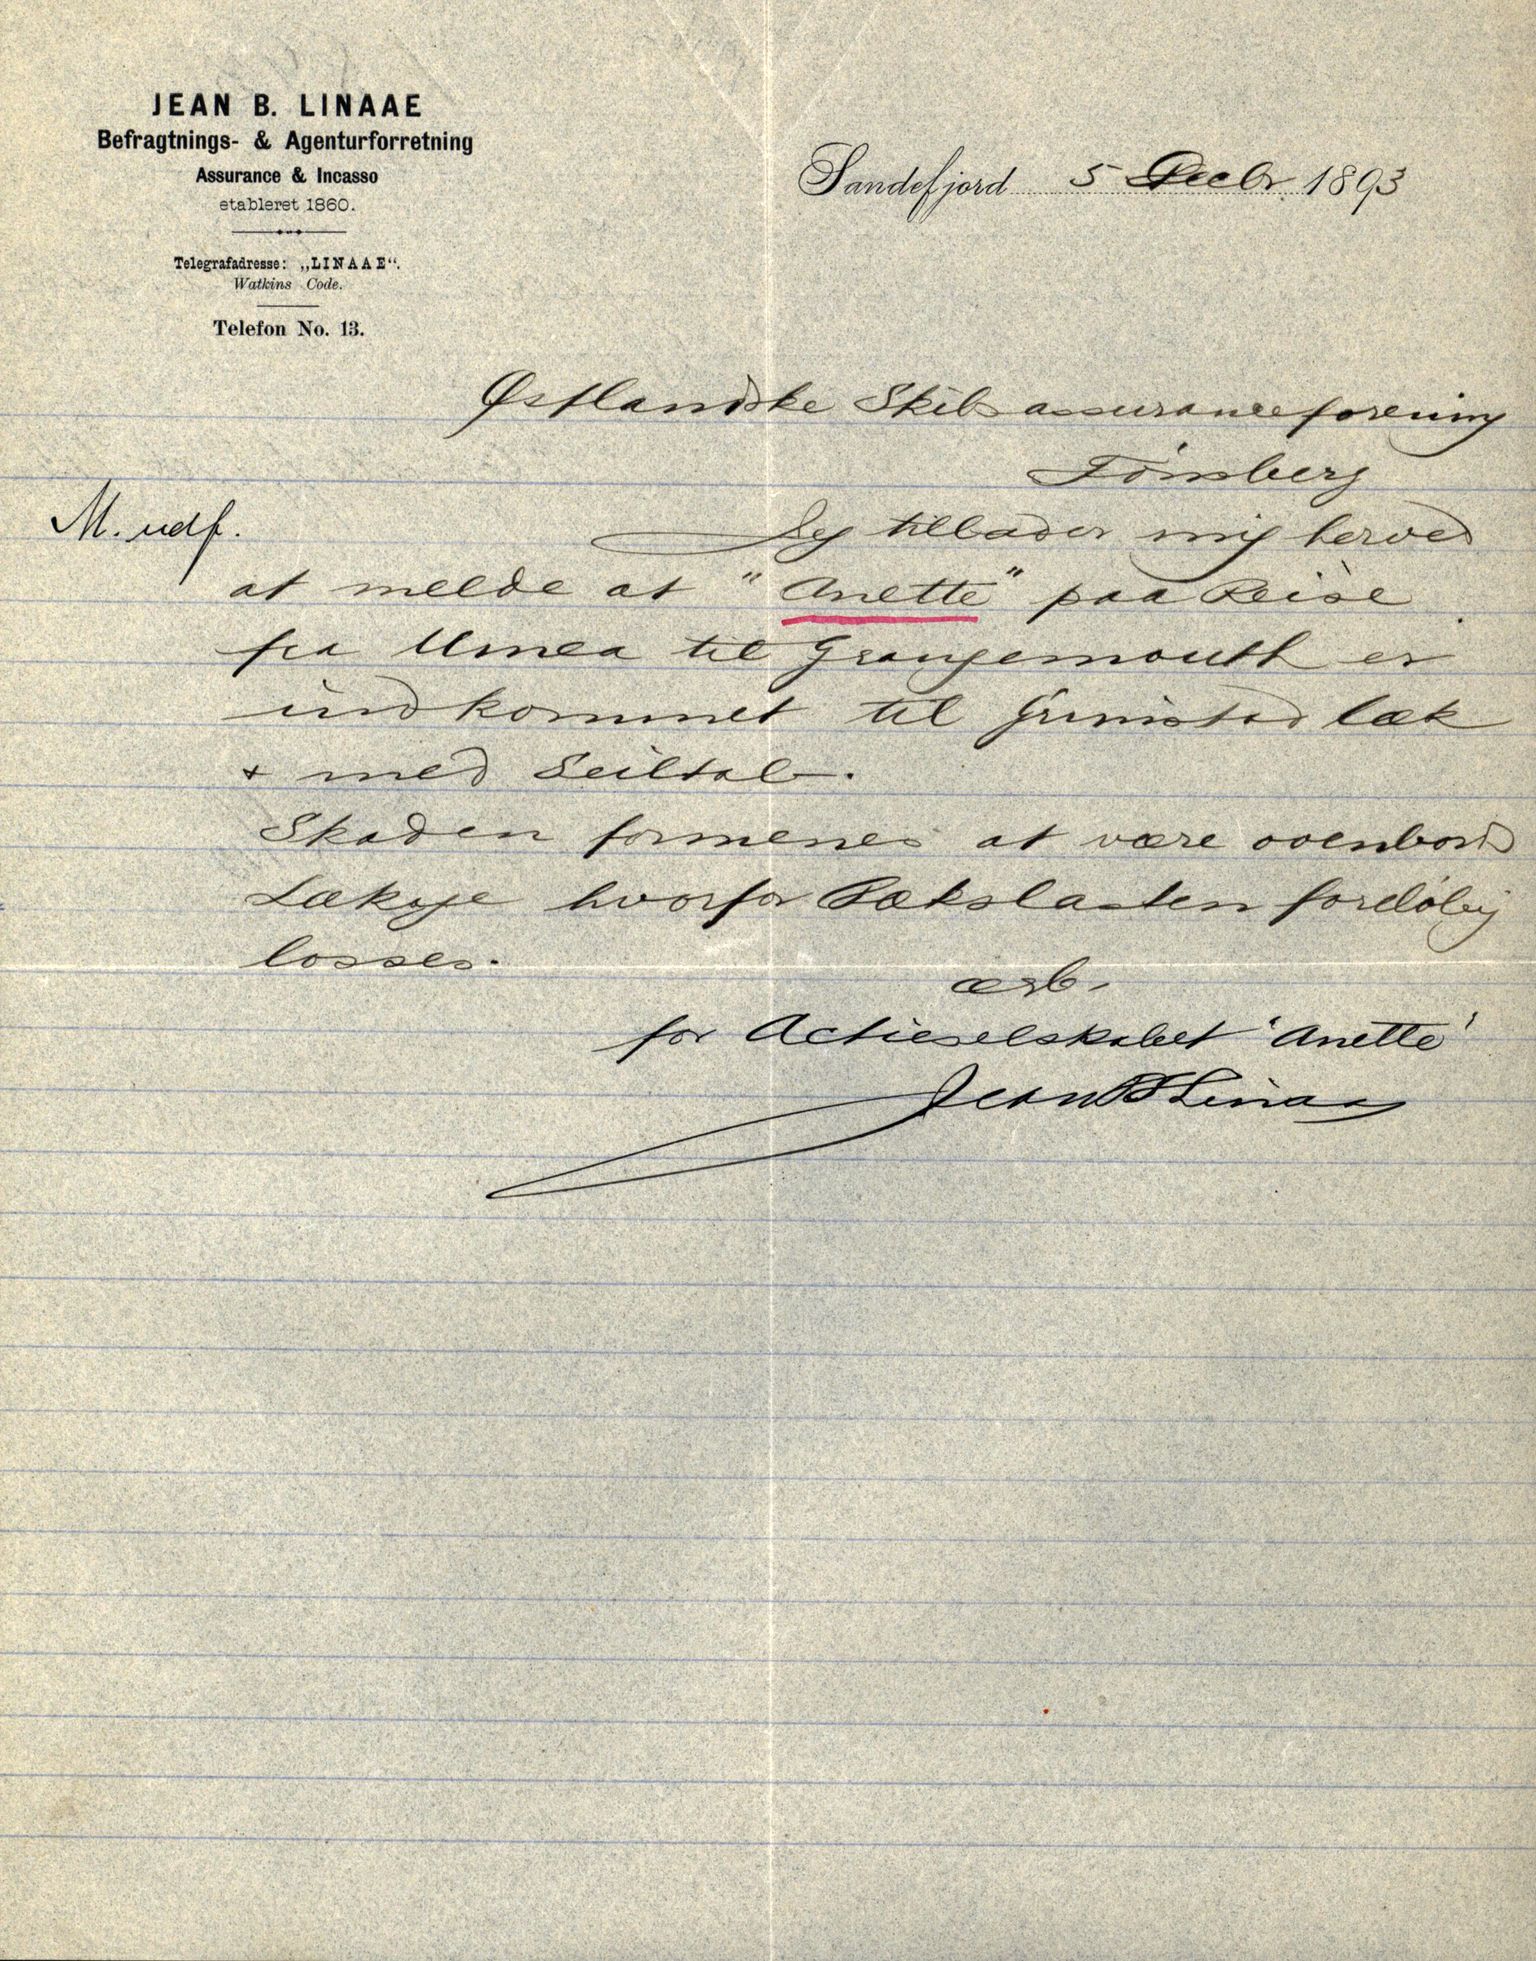 JEAN B. LINAAE
Befragtnings- & Agenturforretning
Assurance & Incasso
etableret 1860.
Telegrafadresse: „LINAAE“.
Watkins Code.
Telefon No. 13.
Sandefjord 5 Decbr 1893
Østlandske Skibsassuranceforening
Tönsberg
M. udf.
Jeg tillader mig herved
at melde at "Anette" paa Reise
fra Umea til Grangemouth er
indkommet til Grimstad læk
+ med Seiltab.
Skaden formenes at være ovenbords
Lækage hvorfor Dækslasten foreløbig
losses.
ærb.
for Actieselskabet 'Anette'
Jean B Linaae